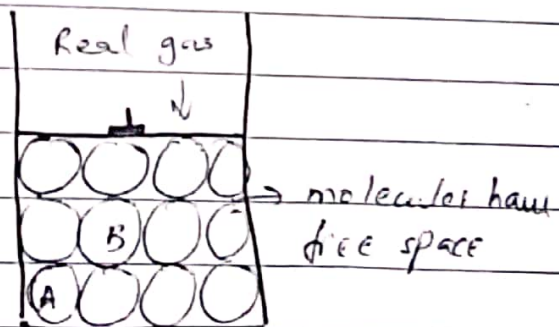 Real gas
→ molecules have
free space
B
A